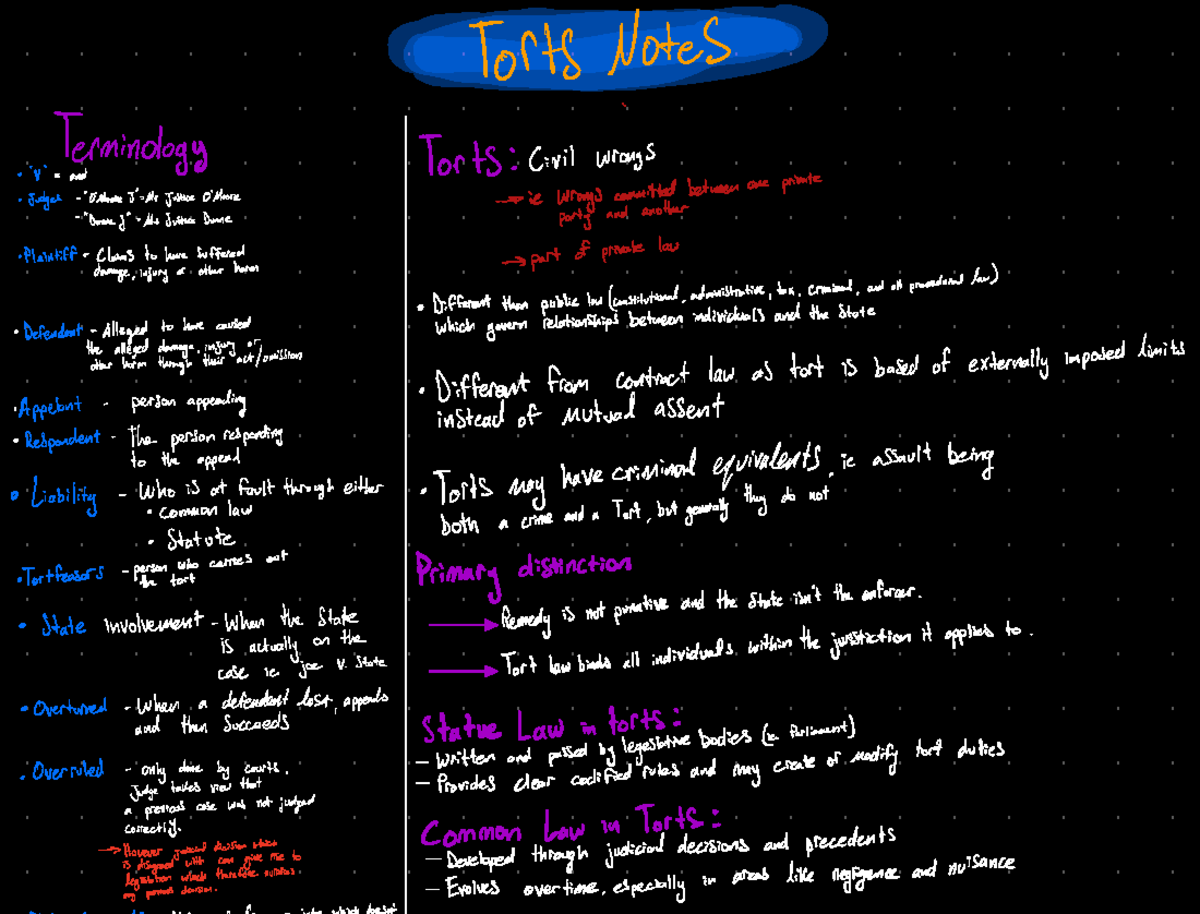 Torts Notes
Terminology
• "V" = and
• Judges - "O'Moore J" = Mr Justice O'Moore
- "Dunne J" = Ms Justice Dunne
• Plaintiff - Claims to have suffered
damage, injury or other harm
• Defendant - Alleged to have caused
the alleged damage, injury or
other harm through their act/omission
• Appelant - person appealing
• Respondent - The person responding
to the appeal
• Liability - Who is at fault through either
• Common law
• Statute
• Tortfeasors - person who carries out
the tort
• State involvement - When the State
is actually on the
case ie. joe v. State
• Overturned - When a defendant lost, appeals
and then Succeeds
• Overruled - only done by courts.
Judge takes view that
a previous case was not judged
correctly.
→ However judicial decision which
is disagreed with can give rise to
legislation which therefore
any previous decision.
Torts: Civil wrongs
→ ie wrongs committed between one private
party and another
→ part of private law
• Different than public law (constitutional, administrative, tax, criminal, and all procedural law)
which govern relationships between individuals and the State
• Different from contract law as tort is based of externally imposed limits
instead of mutual assent
• Torts may have criminal equivalents, ie assault being
both a crime and a Tort, but generally they do not
Primary distinction
→ Remedy is not punative and the State isn't the enforcer.
→ Tort law binds all individuals within the jurisdiction it applies to.
Statue Law in torts:
- Written and passed by legeslative bodies (ie. Parliament)
- Provides clear codified rules and may create or modify tort duties
Common Law in Torts:
- Developed through judicial decisions and precedents
- Evolves overtime, especially in areas like negligence and nuisance